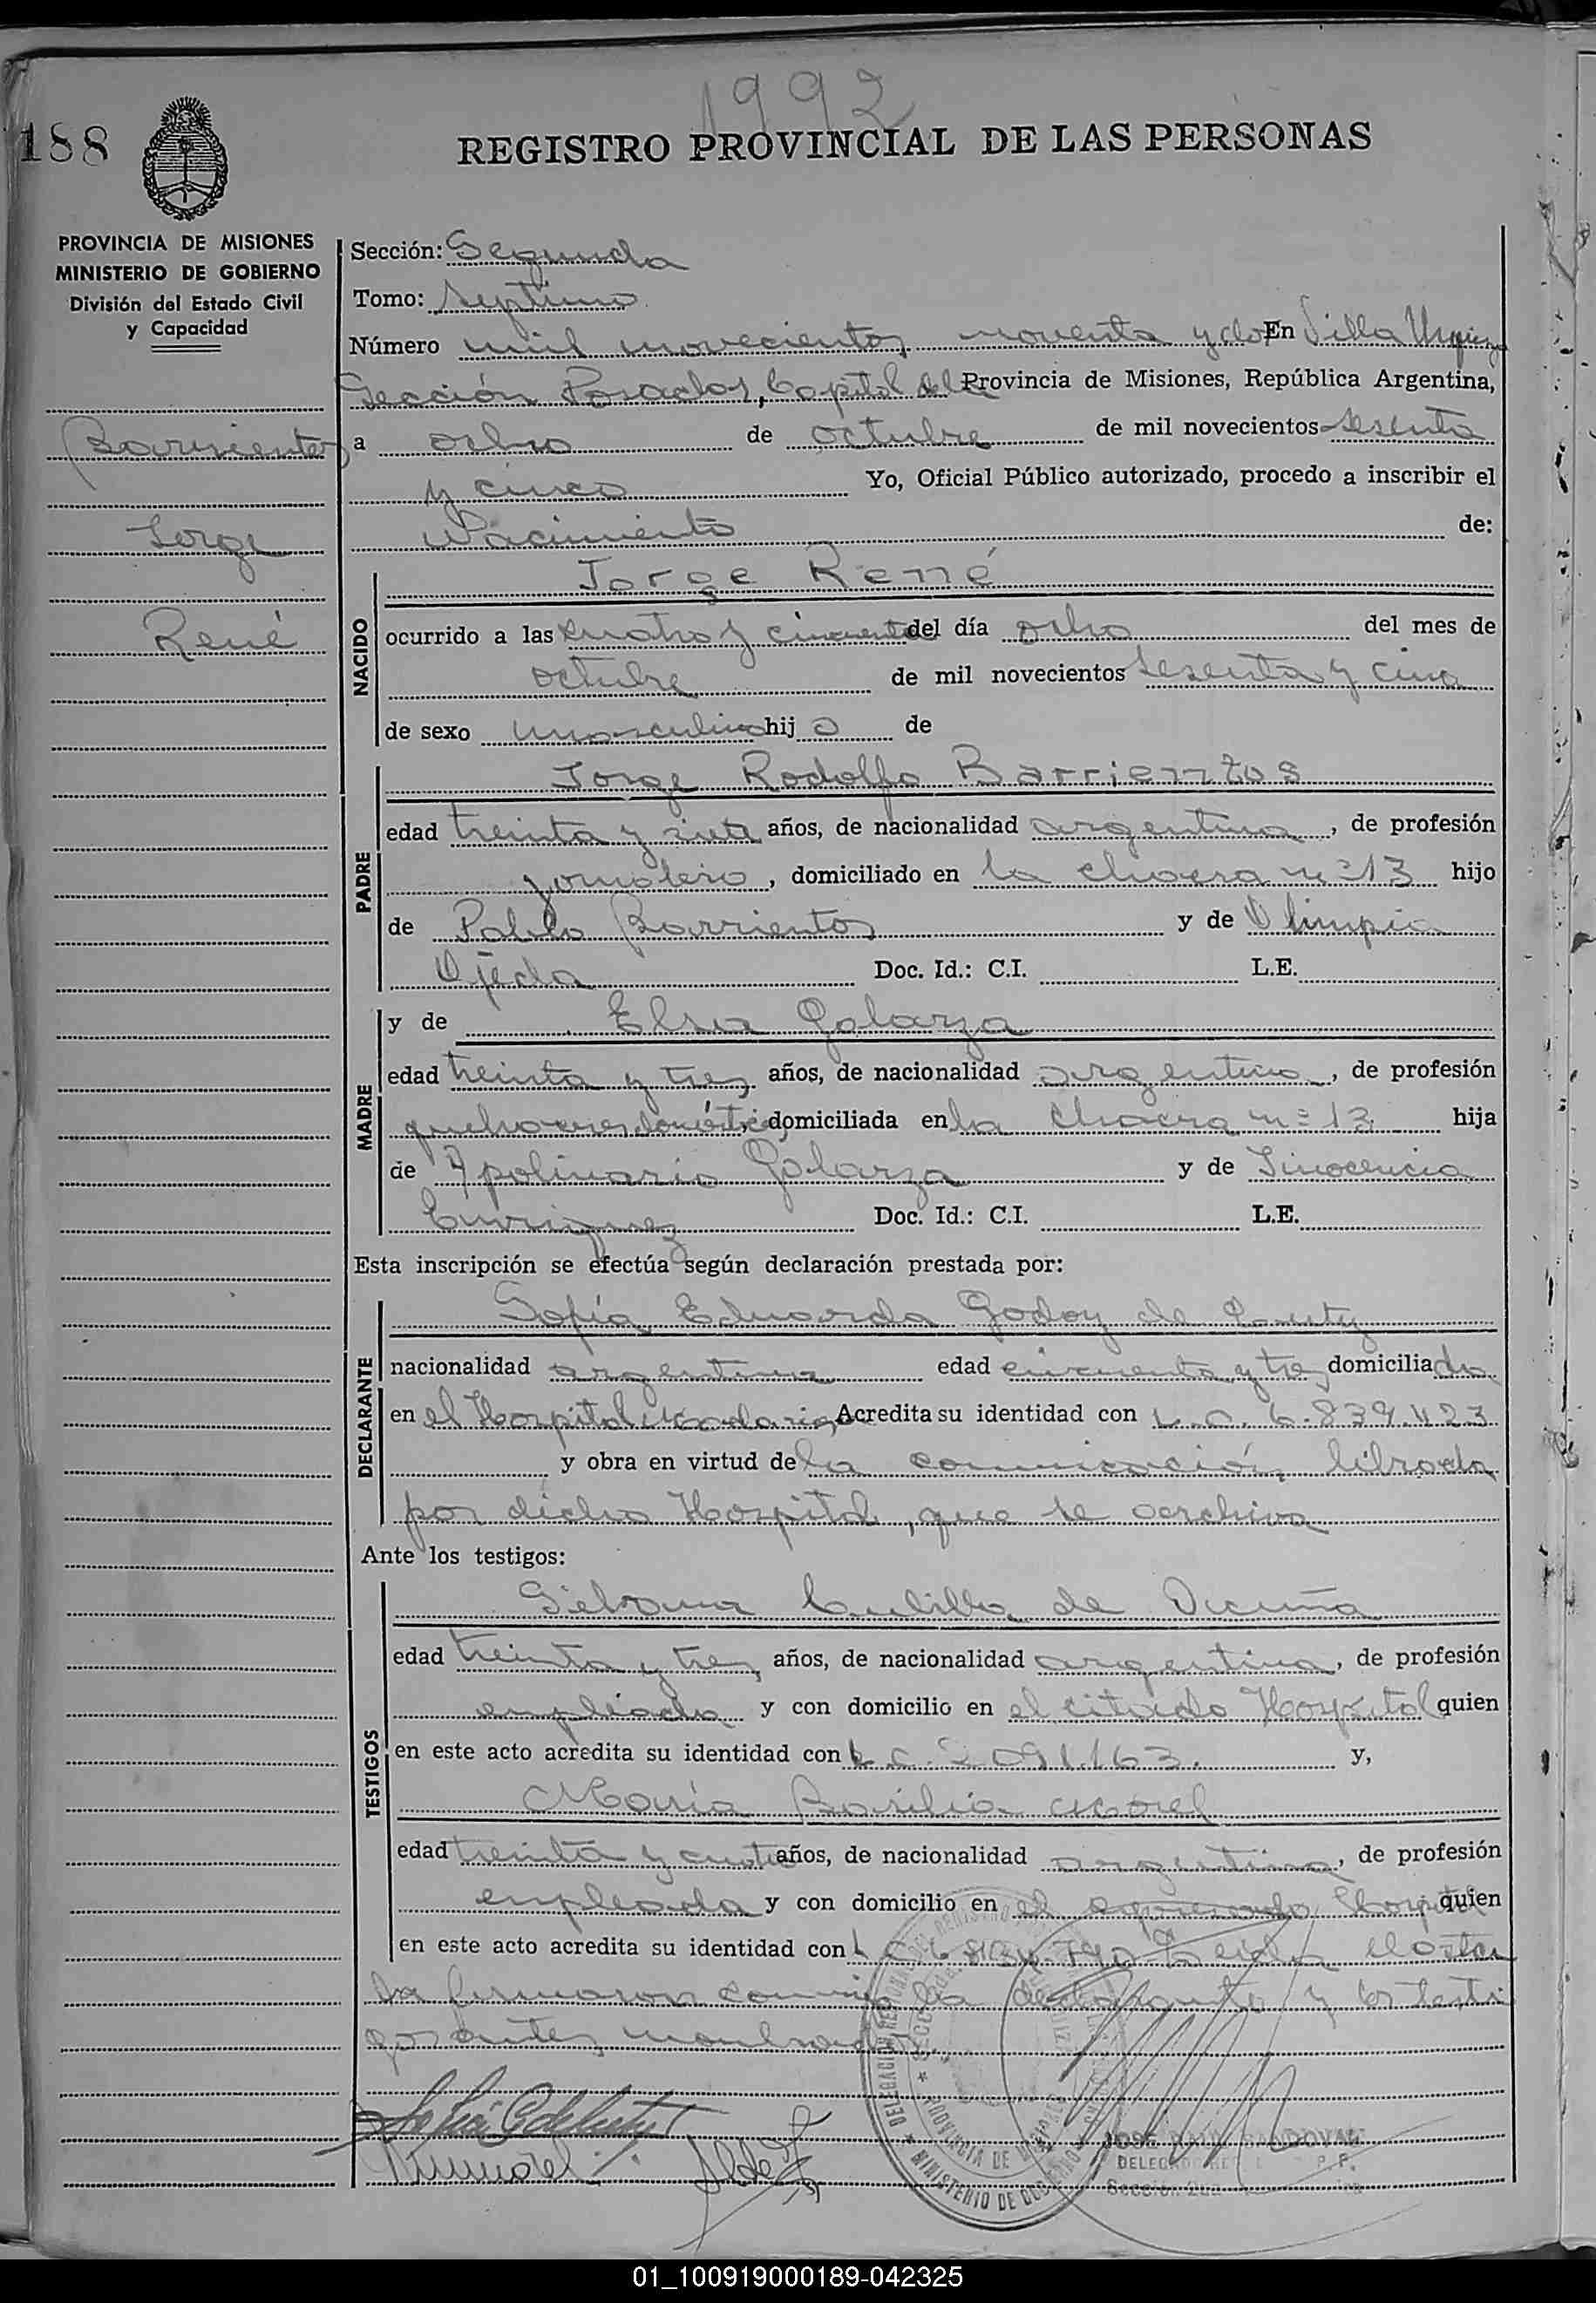 1992
188
REGISTRO PROVINCIAL DE LAS PERSONAS
PROVINCIA DE MISIONES
MINISTERIO DE GOBIERNO
División del Estado Civil
y Capacidad
Barrientos
Jorge
René
Sección: Segunda
Tomo: Septimo
Número mil novecientos noventa y dos En Villa Urquiza
Sección Posadas, Capital de la Provincia de Misiones, República Argentina,
a ocho de octubre de mil novecientos sesenta
y cinco Yo, Oficial Público autorizado, procedo a inscribir el
Nacimiento de:
NACIDO
Jorge René
ocurrido a las cuatro y cincuenta del día ocho del mes de
octubre de mil novecientos sesenta y cinco
de sexo masculino hijo de
PADRE
Jorge Rodolfo Barrientos
edad treinta y siete años, de nacionalidad argentina, de profesión
jornalero, domiciliado en la chacra nº 13 hijo
de Pablo Barrientos y de Olimpia
Ojeda Doc. Id.: C.I. L.E.
MADRE
y de Elsa Galarza
edad treinta y tres años, de nacionalidad argentina, de profesión
quehaceres domésticos, domiciliada en la chacra nº 13 hija
de Apolinario Galarza y de Inocencia
Enriquez Doc. Id.: C.I. L.E.
Esta inscripción se efectúa según declaración prestada por:
DECLARANTE
Sofía Eduarda Godoy de
nacionalidad argentina edad cincuenta y tres domiciliada
en el Hospital Madariaga Acredita su identidad con L.C. 6.839.423
y obra en virtud de la comunicación librada
por dicho Hospital, que se archiva
Ante los testigos:
TESTIGOS
de Vicuña
edad treinta y tres años, de nacionalidad argentina, de profesión
empleada y con domicilio en el citado Hospital quien
en este acto acredita su identidad con L.C. 2.091.163. y,
María Basilia Morel
edad treinta y cuatro años, de nacionalidad argentina, de profesión
empleada y con domicilio en el expresado Hospital quien
en este acto acredita su identidad con L.C. Leida el acta
la firmaron conmigo la declarante y los testi
gos antes nombrados.
DELEGACION
PROVINCIA DE MISIONES
MINISTERIO DE GOBIERNO
JOSE SANDOVAL
01_100919000189-042325